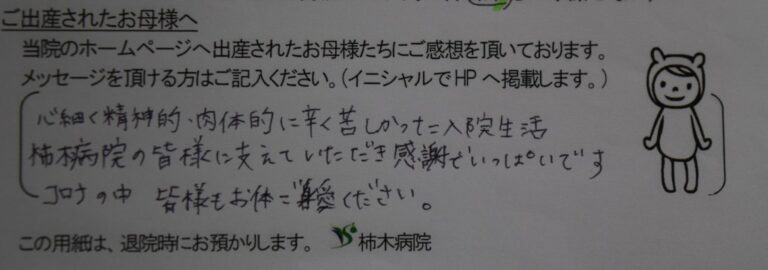 ご出産されたお母様へ
当院のホームページへ出産されたお母様たちにご感想を頂いております。
メッセージを頂ける方はご記入ください。(イニシャルでHPへ掲載します。)
心細く精神的・肉体的に辛く苦しかった入院生活
柿木病院の皆様に支えていただき感謝でいっぱいです
コロナの中 皆様もお体ご自愛ください。
この用紙は、退院時にお預かりします。 柿木病院